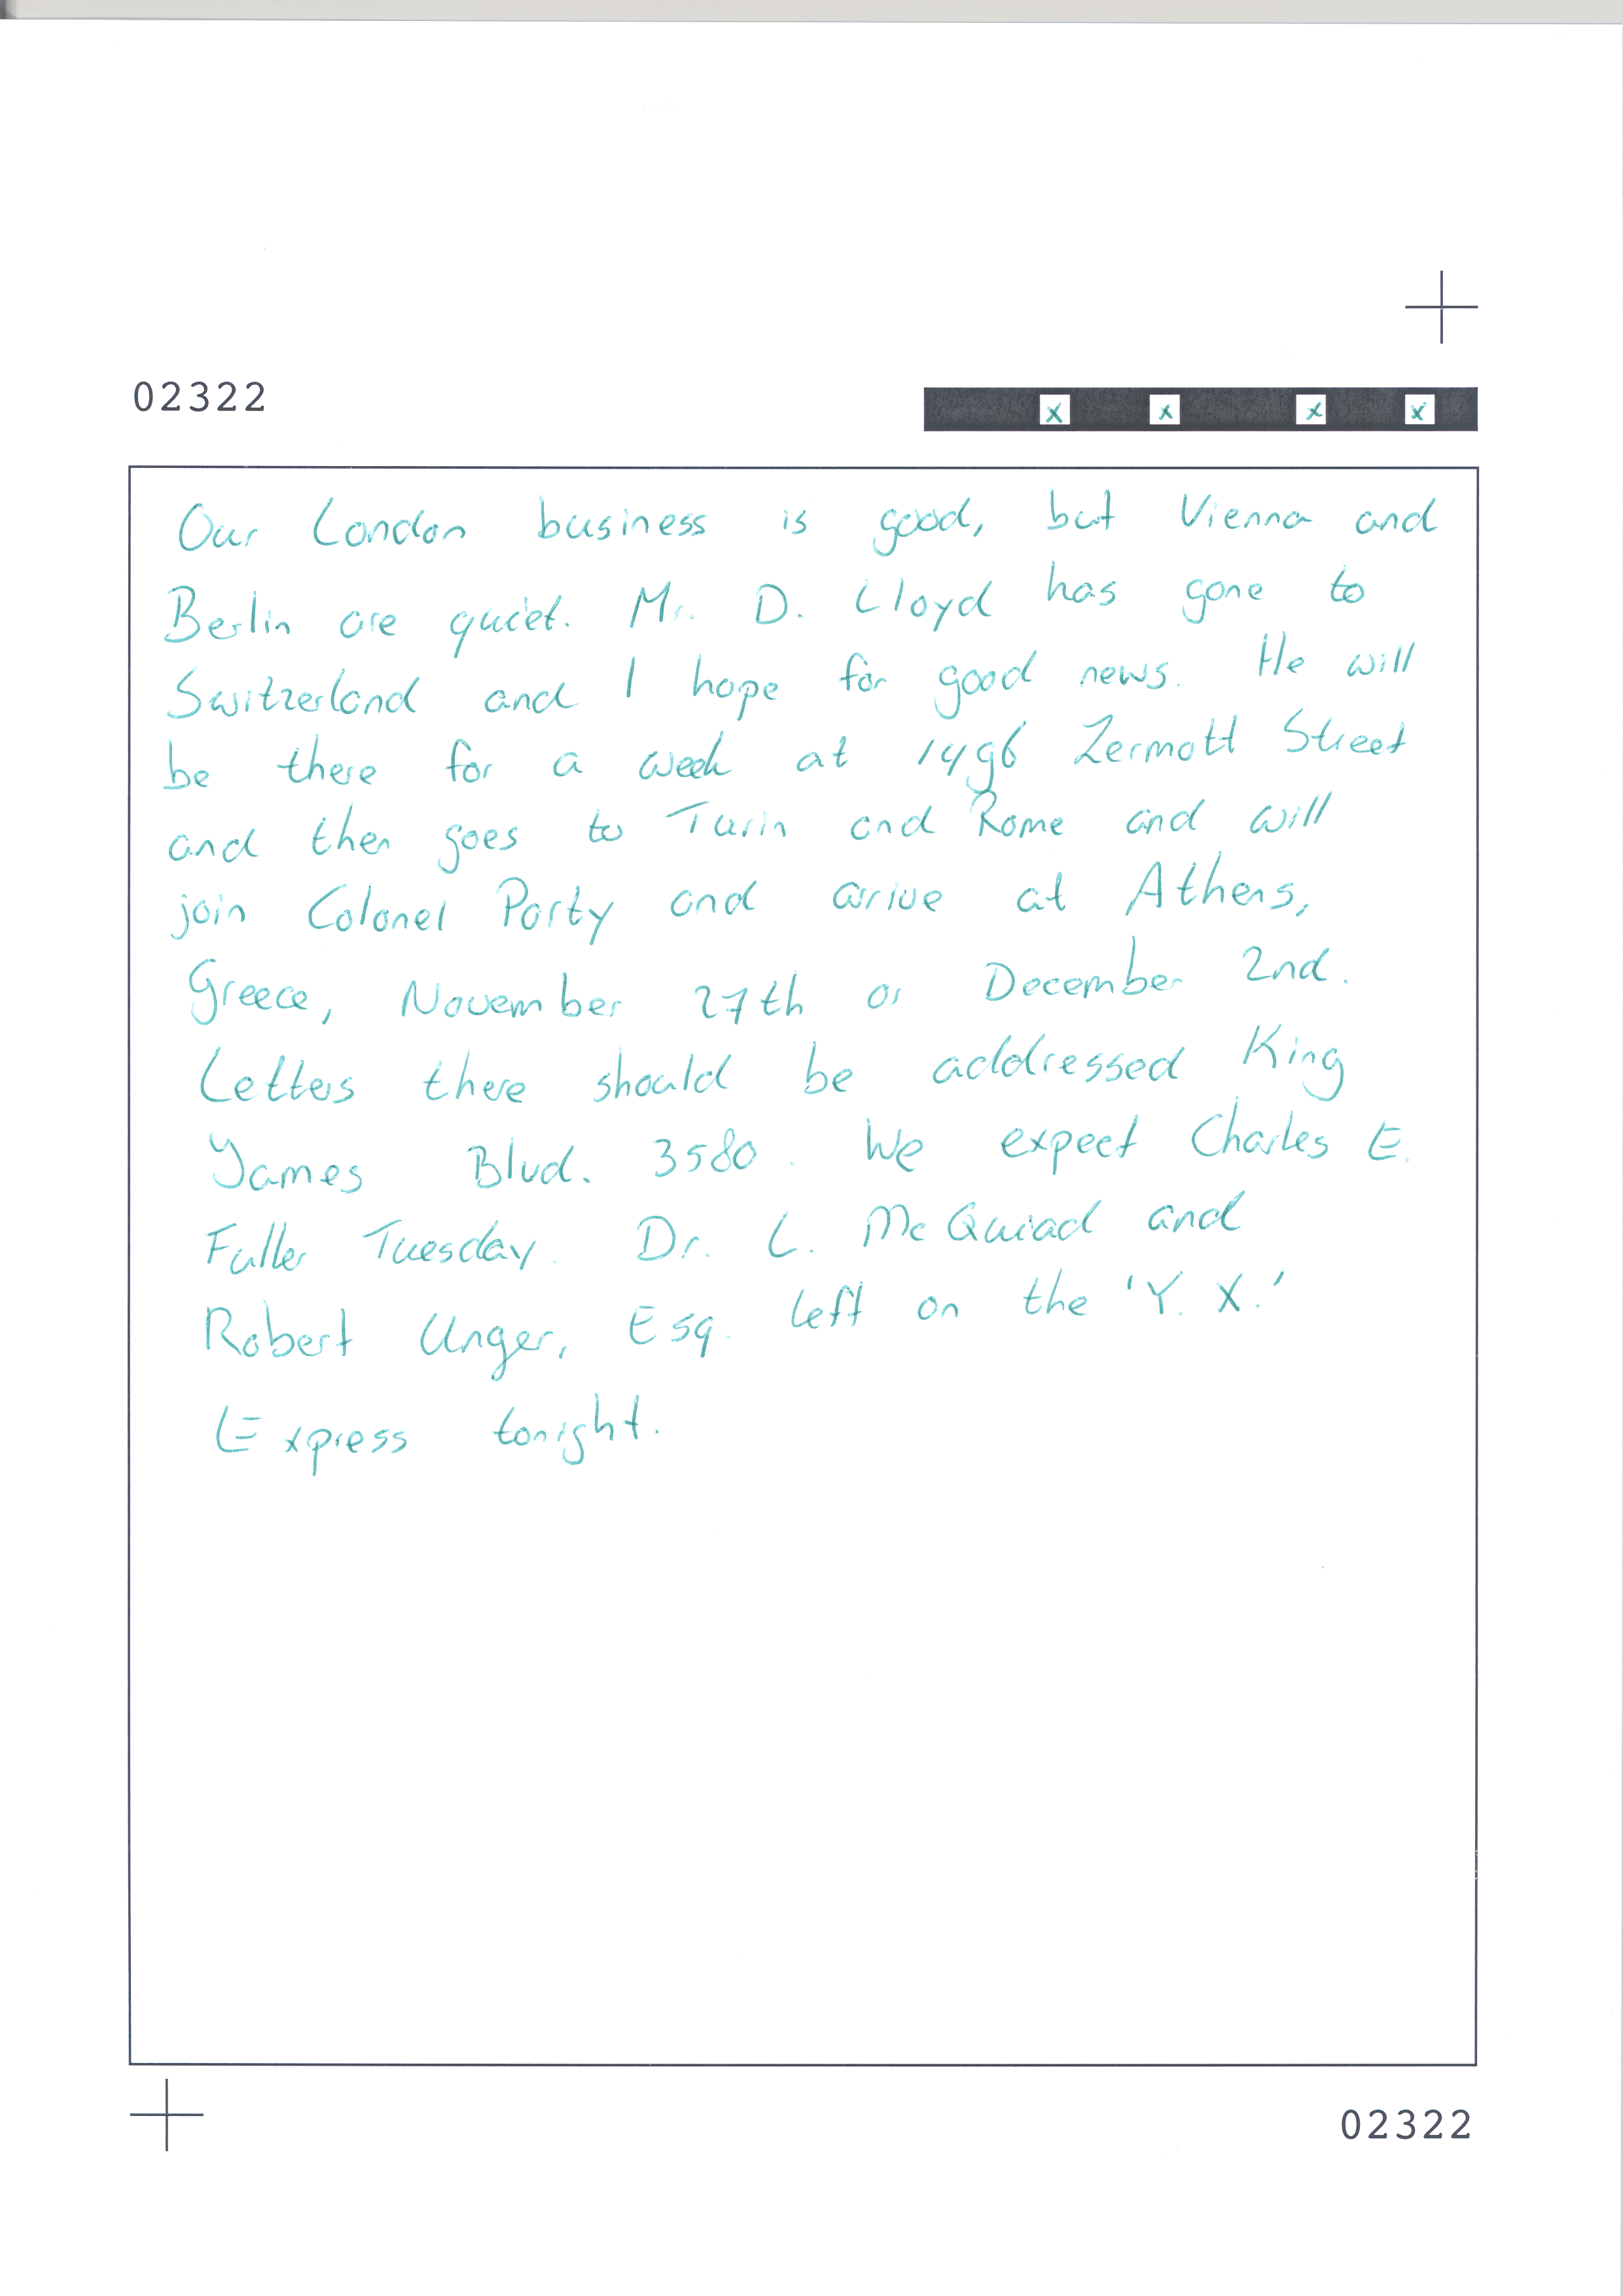 02322
x x x x
Our London business is good, but Vienna and
Berlin are quiet. Mr. D. Lloyd has gone to
Switzerland and I hope for good news. He will
be there for a week at 1496 Zermott Street
and then goes to Turin and Rome and will
join Colonel Party and arrive at Athens,
Greece, November 27th or December 2nd.
Letters there should be addressed King
Yames Blvd. 3580. We expect Charles E.
Fuller Tuesday. Dr. L. McQuiad and
Robert Unger, Esq. left on the 'Y. X.'
Express tonight.
02322